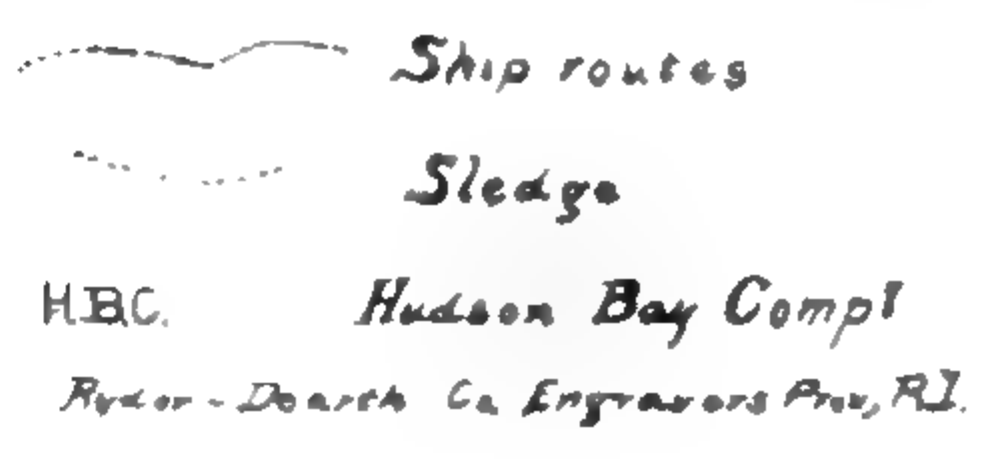 Ship routes
Sledge
H.B.C. Hudson Bay Compy
Ryder-Dearth Co. Engravers Prov., R.I.